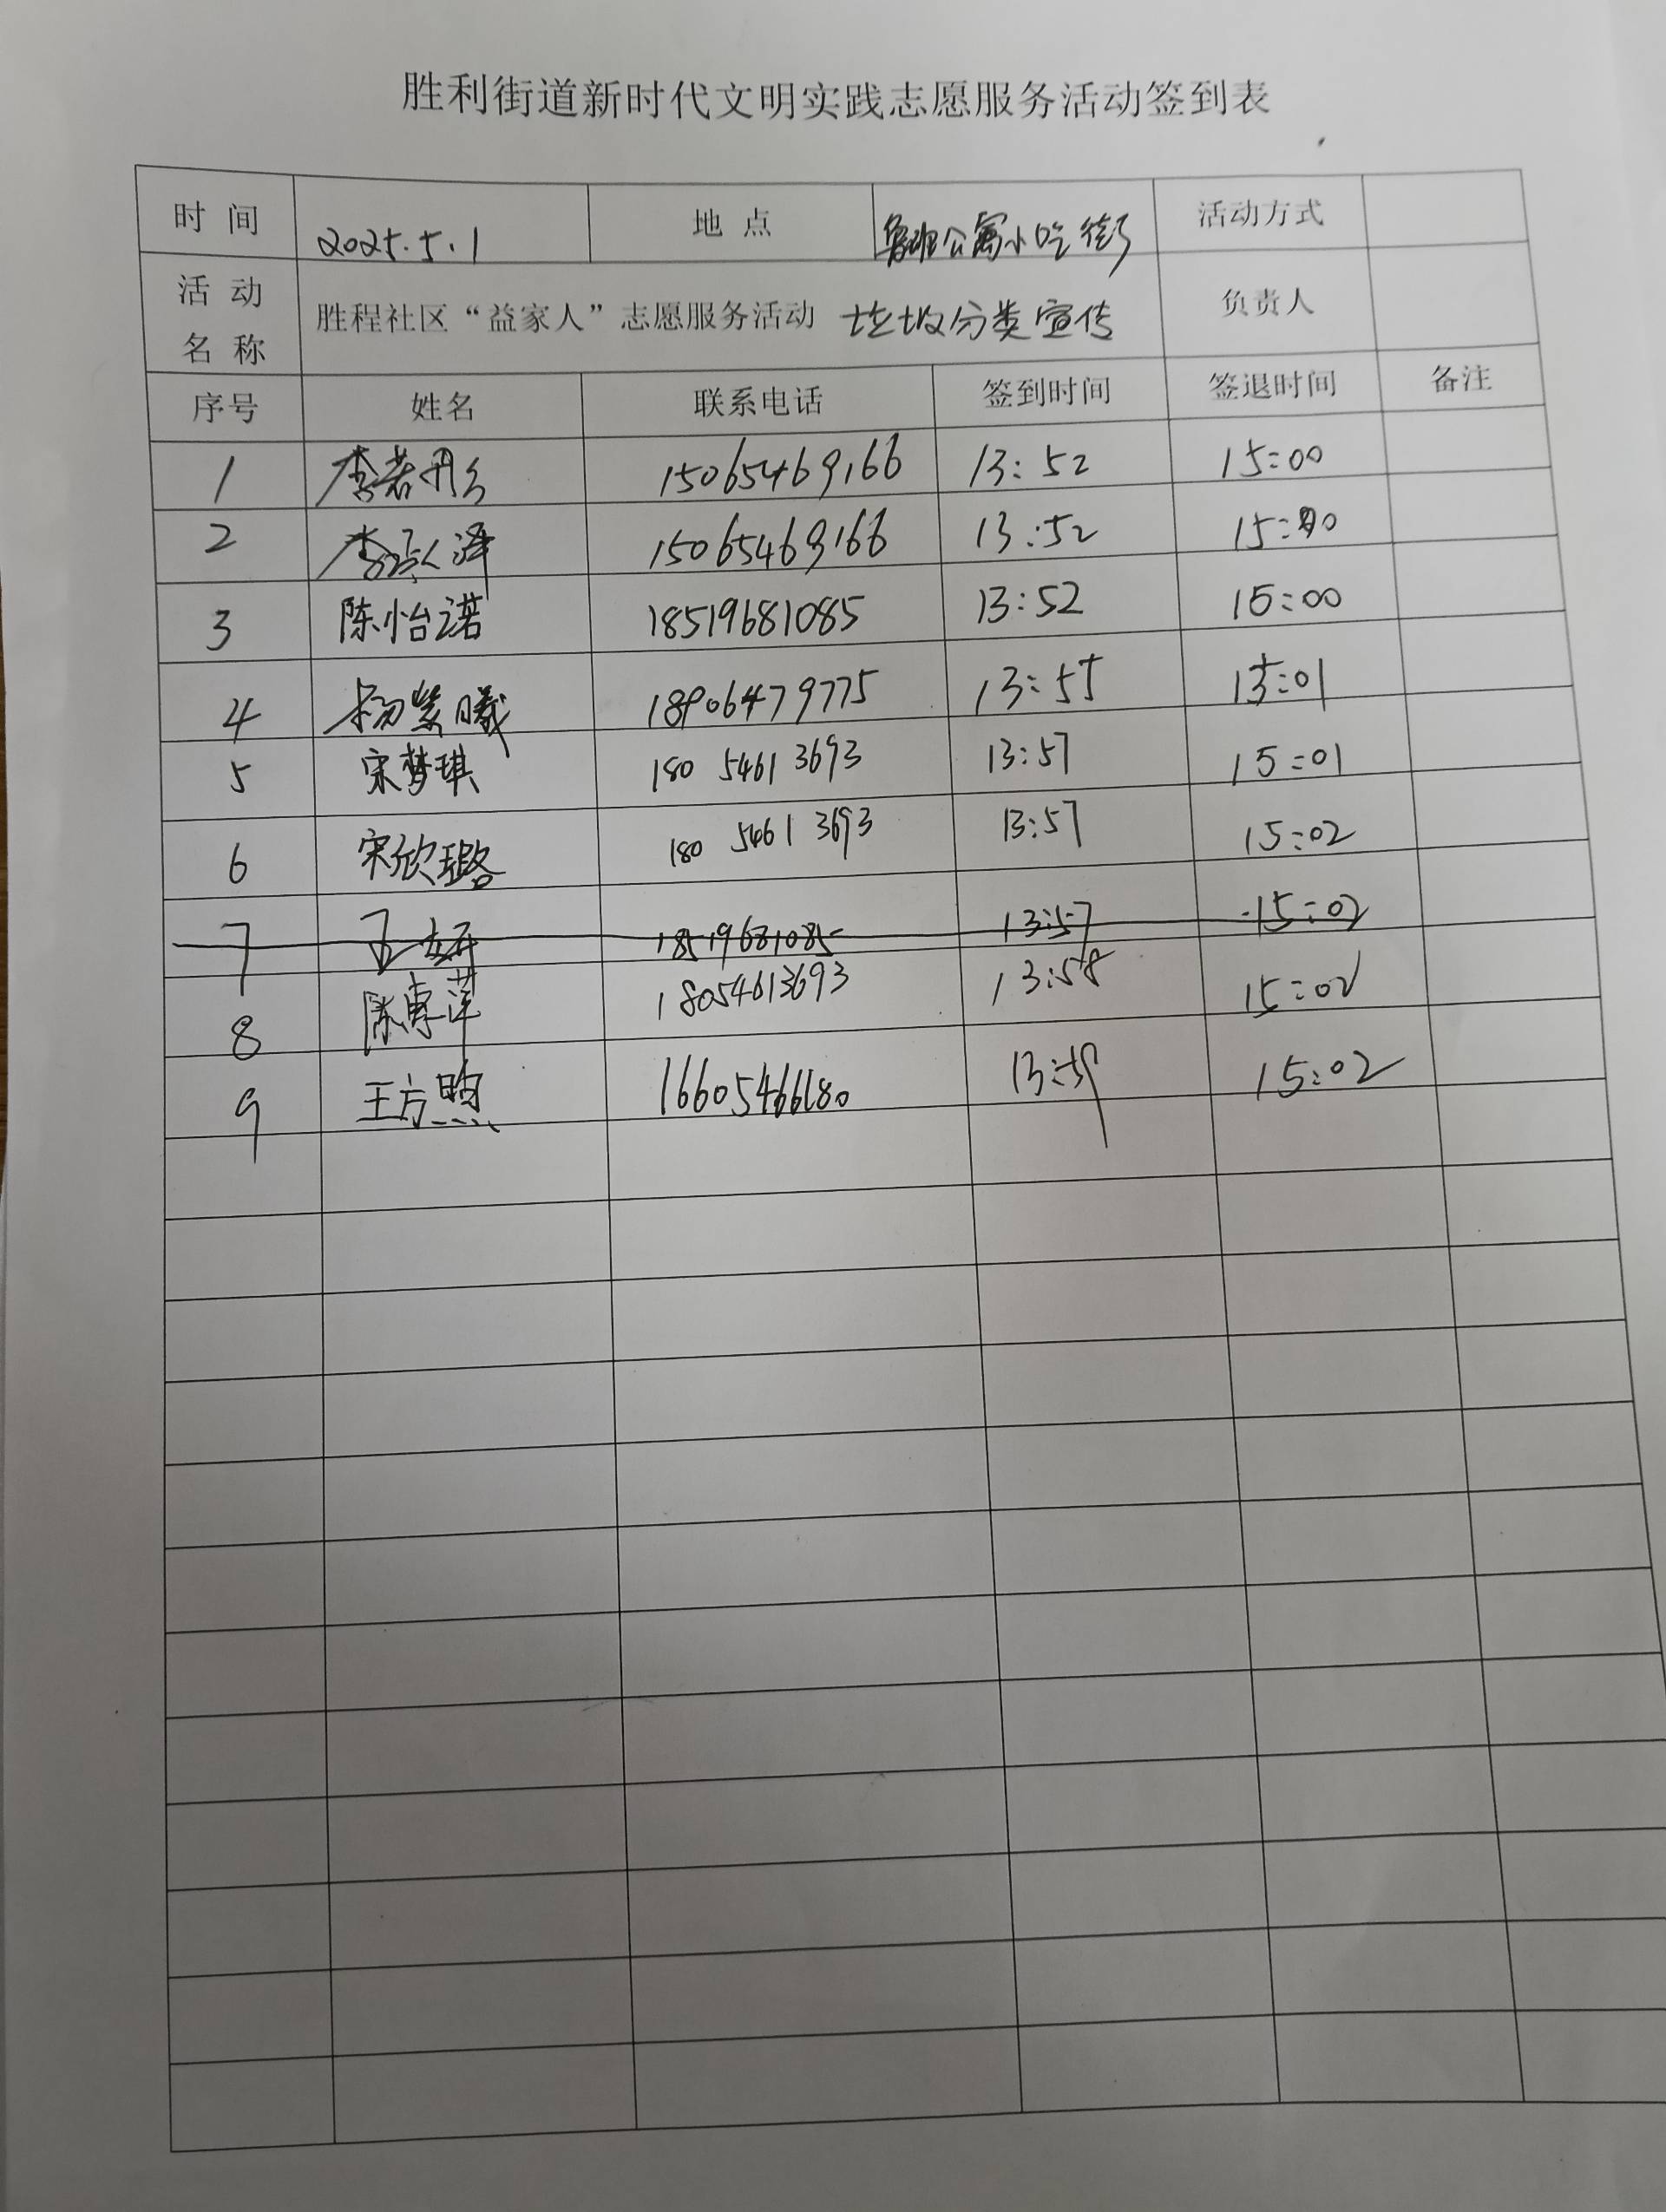 胜利街道新时代文明实践志愿服务活动签到表
时 间 2025.5.1 地 点 鲁班公寓小吃街 活动方式
活 动 名 称 胜程社区“益家人”志愿服务活动 垃圾分类宣传 负责人
序号 姓名 联系电话 签到时间 签退时间 备注
1 李若彤 15065469166 13:52 15:00
2 李 泽 15065469166 13:52 15:00
3 陈怡诺 18519681085 13:52 15:00
4 杨紫曦 18906479775 13:55 15:01
5 宋梦琪 180 5461 3693 13:57 15:01
6 宋欣璐 180 5461 3693 13:57 15:02
7 王妍 18519681085 13:57 15:02
8 陈 萍 18054613693 13:58 15:02
9 王方煦 16605466180 13:59 15:02